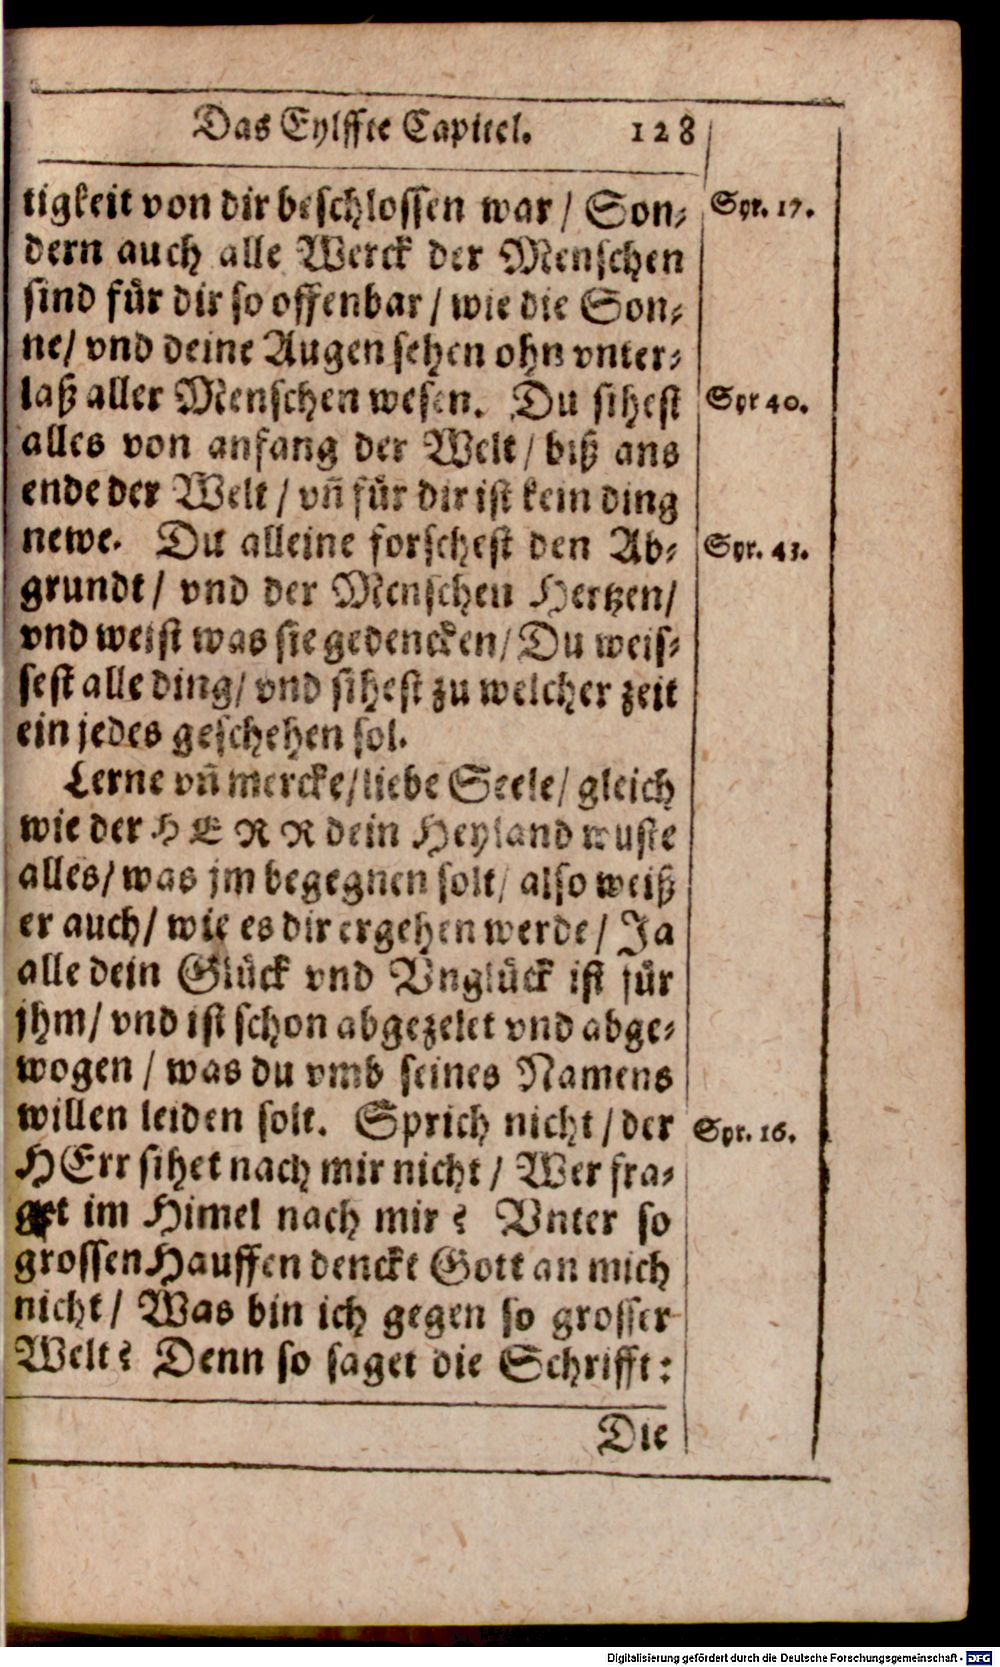 Das Eylffte Capitel. 128
tigkeit von dir beschlossen war / Son⸗ Syr. 17.
dern auch alle Werck der Menschen
sind für dir so offenbar / wie die Son⸗
ne / vnd deine Augen sehen ohn vnter⸗
laß aller Menschen wesen. Du sihest Syr 40.
alles von anfang der Welt / biß ans
ende der Welt / vñ für dir ist kein ding
newe. Du alleine forschest den Ab⸗ Syr. 43.
grundt / vnd der Menschen Hertzen /
vnd weist was sie gedencken / Du weis⸗
sest alle ding / vnd sihest zu welcher zeit
ein jedes geschehen sol.
Lerne vñ mercke / liebe Seele / gleich
wie der HERR dein Heyland wuste
alles / was jm begegnen solt / also weiß
er auch / wie es dir ergehen werde / Ja
alle dein Glück vnd Vnglück ist für
jhm / vnd ist schon abgezelet vnd abge⸗
wogen / was du vmb seines Namens
willen leiden solt. Sprich nicht / der Syr. 16.
HErr sihet nach mir nicht / Wer fra⸗
get im Himel nach mir? Vnter so
grossen Hauffen denckt Gott an mich
nicht / Was bin ich gegen so grosser
Welt? Denn so saget die Schrifft:
Die
Digitalisierung gefördert durch die Deutsche Forschungsgemeinschaft - DFG